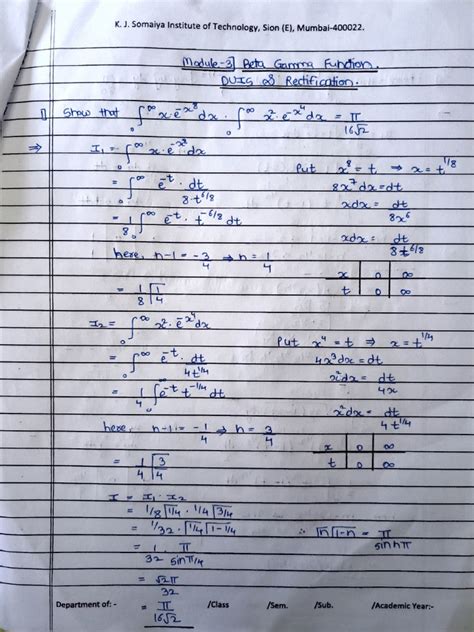 K. J. Somaiya Institute of Technology, Sion (E), Mumbai-400022.
Module-3] Beta Gamma Function.
DUIS & Rectification.
1] Show that ∫₀^∞ x·e^(-x⁸) dx · ∫₀^∞ x²·e^(-x⁴) dx = π/(16√2)
⇒ I₁ = ∫₀^∞ x·e^(-x⁸) dx
Put x⁸ = t ⇒ x = t^(1/8)
= ∫₀^∞ e^(-t) · dt/(8·t^(6/8))
8x⁷ dx = dt
= 1/8 ∫₀^∞ e^(-t) · t^(-6/8) dt
xdx = dt/(8x⁶)
xdx = dt/(8t^(6/8))
here, n-1 = -3/4 ⇒ n = 1/4
x 0 ∞
t 0 ∞
= 1/8 Γ(1/4)
I₂ = ∫₀^∞ x²·e^(-x⁴) dx
Put x⁴ = t ⇒ x = t^(1/4)
= ∫₀^∞ e^(-t) · dt/(4t^(1/4))
4x³dx = dt
= 1/4 ∫₀^∞ e^(-t) t^(-1/4) dt
x²dx = dt/(4x)
x²dx = dt/(4t^(1/4))
here, n-1 = -1/4 ⇒ n = 3/4
x 0 ∞
t 0 ∞
= 1/4 Γ(3/4)
I = I₁ · I₂
= 1/8 Γ(1/4) · 1/4 Γ(3/4)
= 1/32 · Γ(1/4) Γ(1-1/4)
∵ Γ(n) Γ(1-n) = π/(sin nπ)
= 1/32 · π/(sin π/4)
= √2π/32
= π/(16√2)
Department of: - /Class /Sem. /Sub. /Academic Year:-